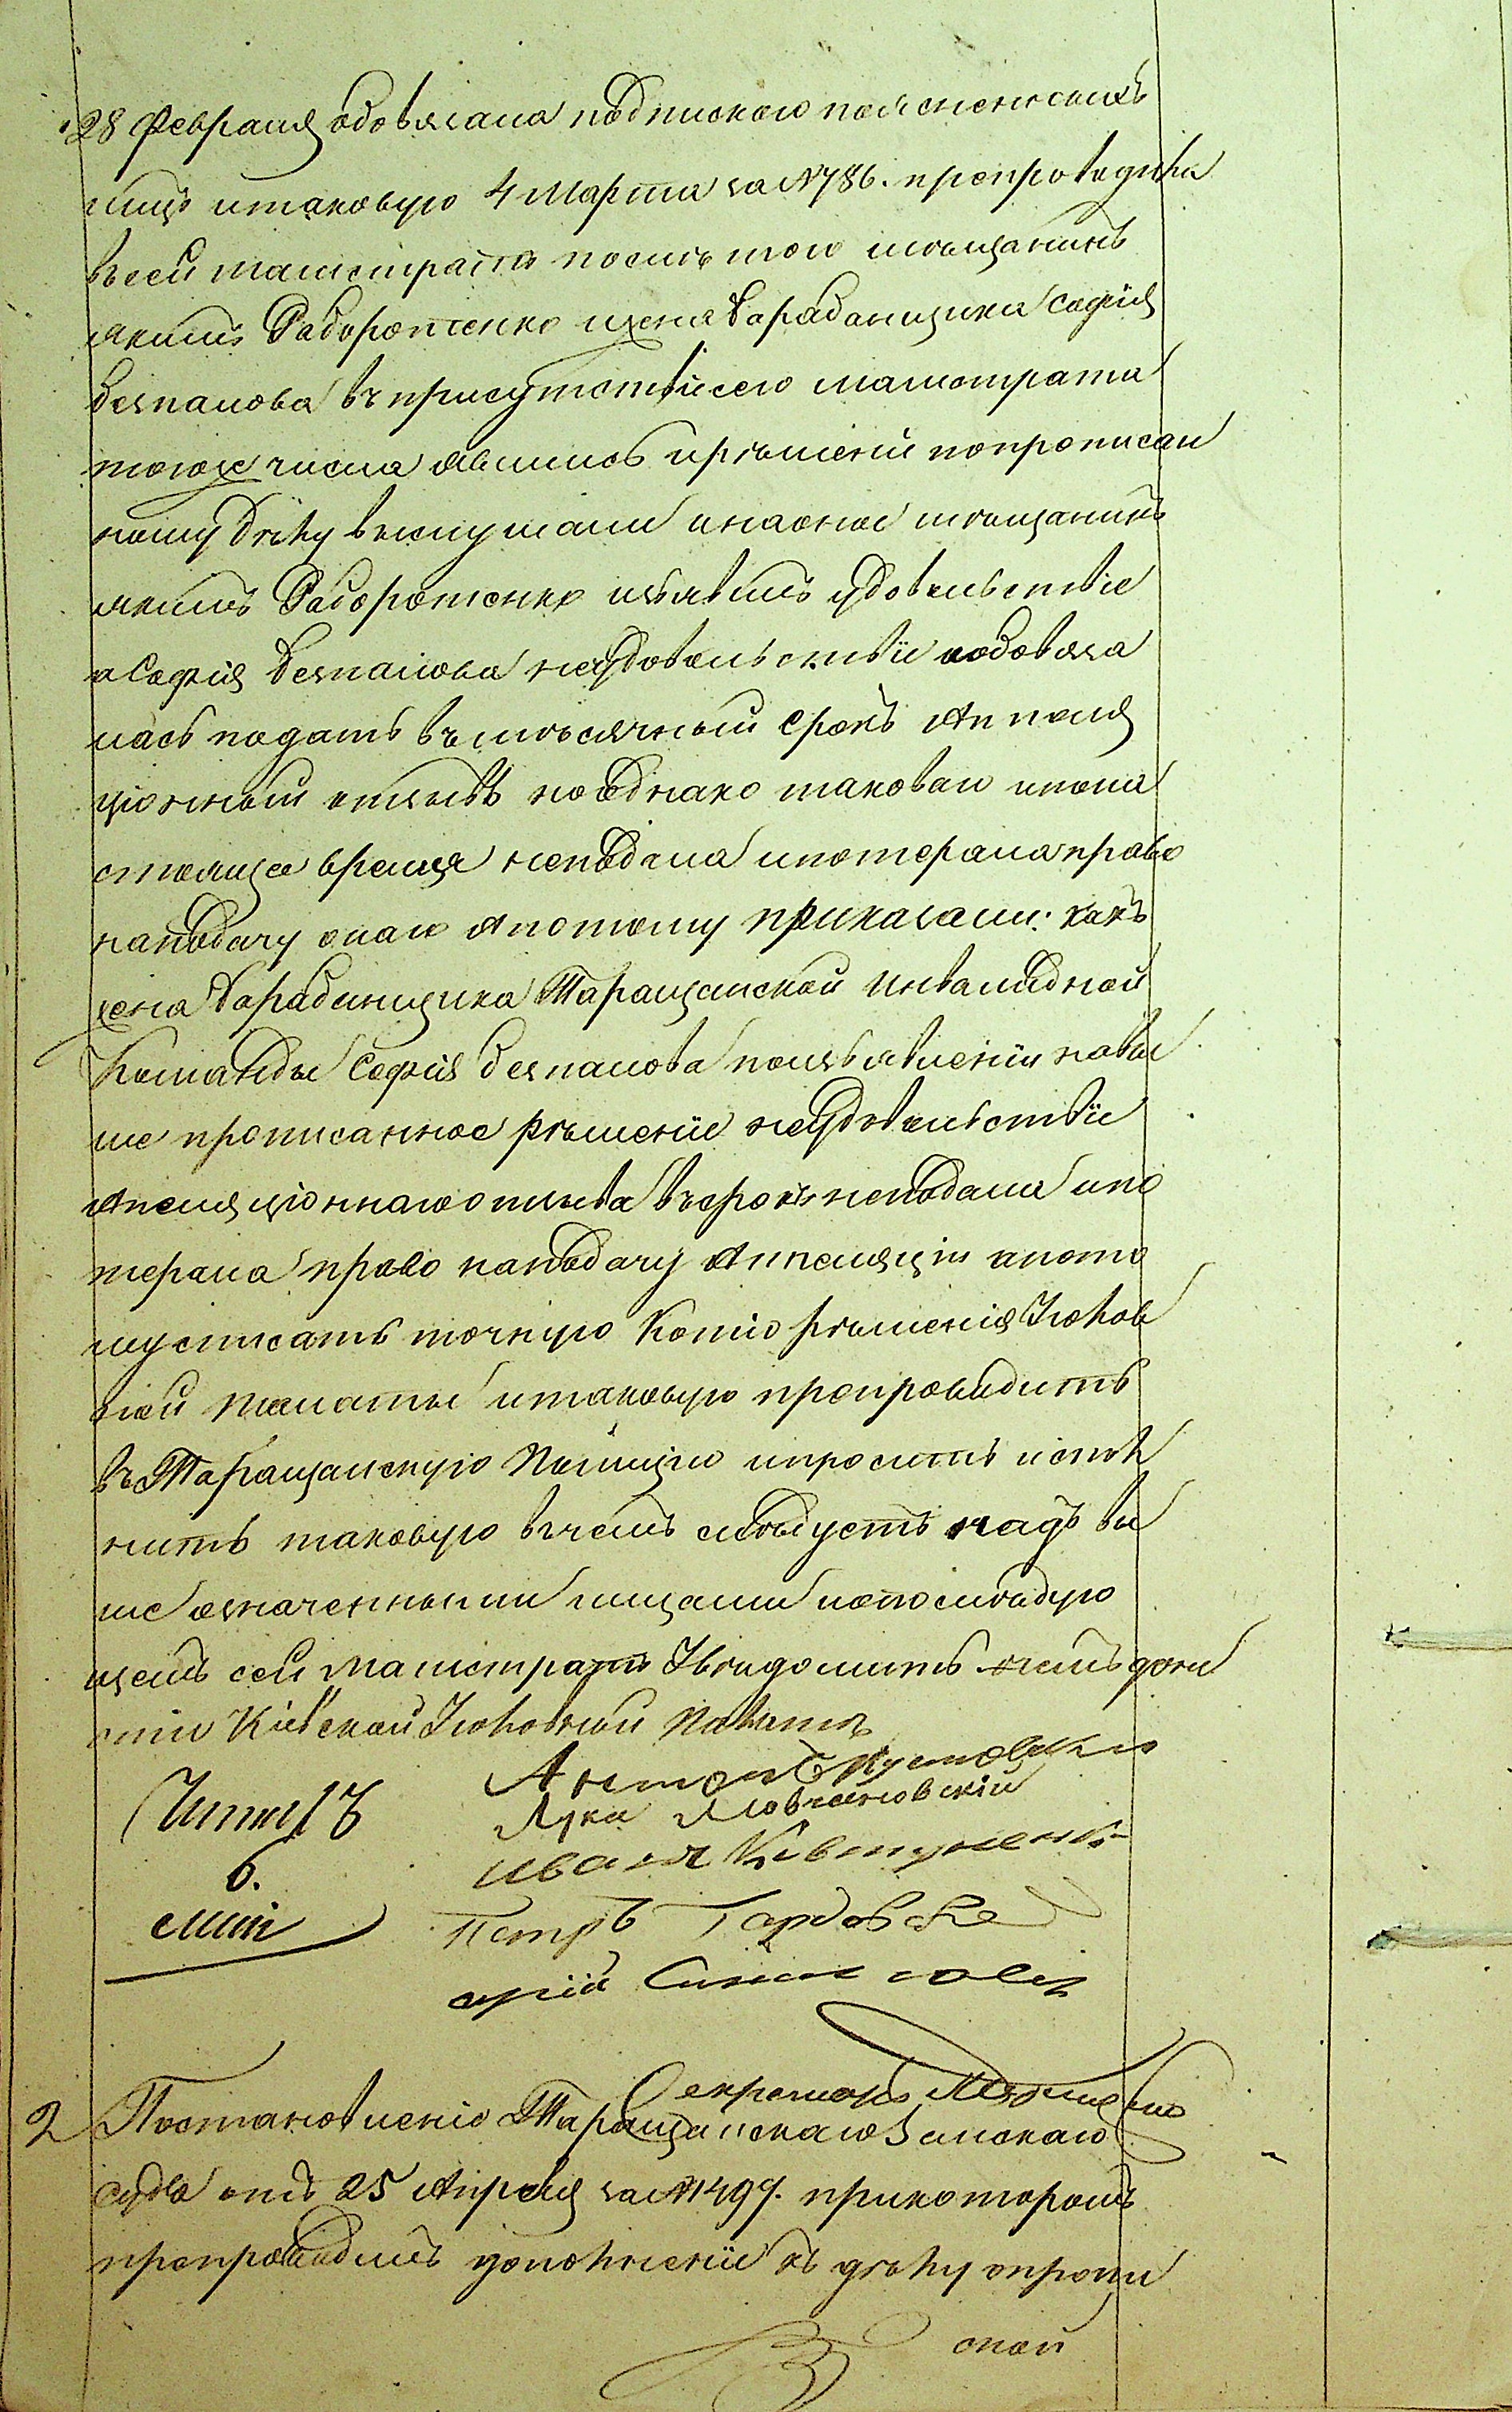 28 Февраля обовязана подпискою поясненныхъ
лицъ итаковую 4 Марта за №786. препроводила
въсей магистратъ послѣ того мѣщанинъ
Якимъ Федоротенко ижена барабанщика Софія
Безпалова въ присутствіи сего магистрата
тогоже числа явились ирѣшеніи попрописан
ному дѣлу выслушали инаоное мѣщанинъ
Якимъ Федоротенко изъявилъ удовольствіе
а Софія Безпалова неудовольствіе иобовяза
лась подать въ мѣсячный срокъ Аппеля
ціонный отзывъ нооднако таковаго ипона
стоящее время неподала ипотеряла право
наподачу онаго Апотому приказали: какъ
жена барабанщика Таращанской Инвалидной
Команды Софія Безпалова поизъявленіи навы
ше прописанное рѣшеніе неудовольствіе
Апеляціоннаго отзыва въсрокъ неподала ипо
теряла право наподачу Аппеляціи апото
му списать точную Копію рѣшенія Уголов
ной Палаты итаковую препроводить
въ Таращанскую Полицію ипросить испол
нить таковую вчемъ слѣдуетъ надъ вы
ше означенными лицами ипопослѣдую
щемъ сей Магистратъ Увѣдомить очемъ доне
сти Кіевской Уголовной Палатѣ
Антонъ
Лука
Читалъ Иванъ Ковтуненко
6.
Петръ
Секретарь
2 Постановленіе Таращанскаго Земскаго
суда отъ 25 Апреля за №1497. прикоторомъ
препроводилъ дополненіе къ дѣлу опропи
сной